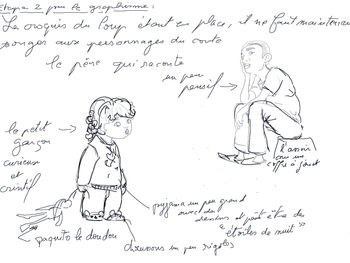 Etape 2 pour le graphisme :
Le croquis du loup étant en place, il ne faut maintenant
songer aux personnages du conte
le père qui raconte
un peu
pensif
le petit
garçon
curieux
et
craintif
l'assoir
sur un
coffre à jouet
pyjama un peu grand
avec des
dessins et peut être des
"étoiles de nuit"
paquito le doudou
chaussons un peu rigolos